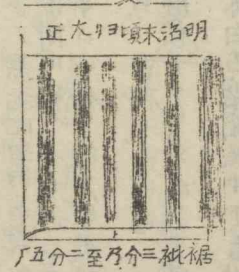 明治末頃ヨリ大正
裾衪三分乃至二分五厂